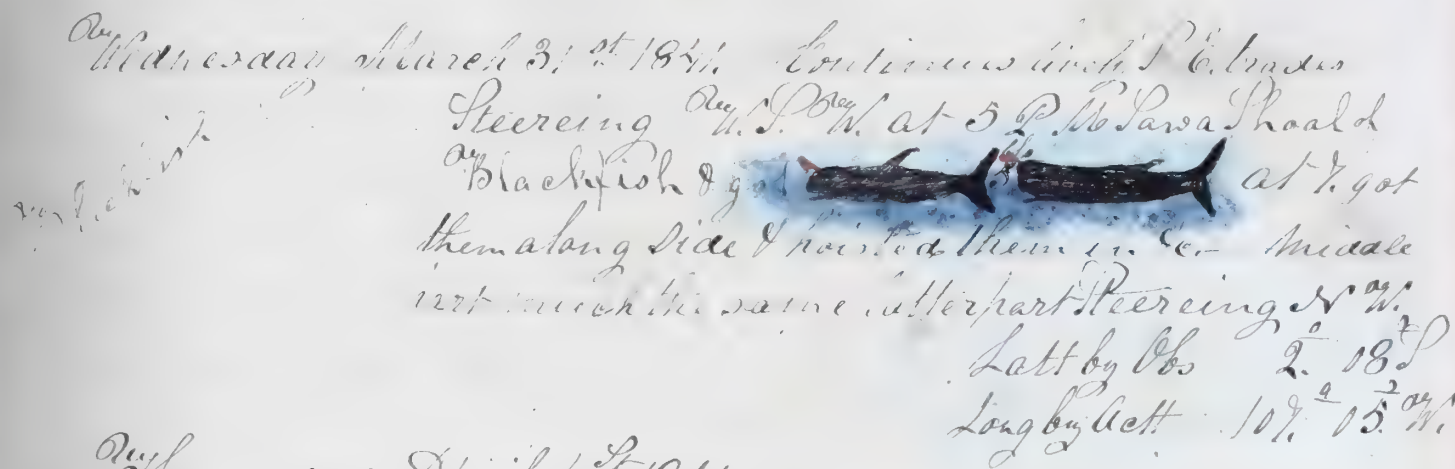 Wednesday March 31st 1841. Continues with S E. trades
Steereing W. S. W. at 5 P M Saw a Shoal of
Blackfish & got at 7. got
them along Side & hoisted them in &c Middle
part much the same latterpart Steereing N W.
Latt by Obs 2° 08' S
Long by Actt 107° 05' W.
April 1st